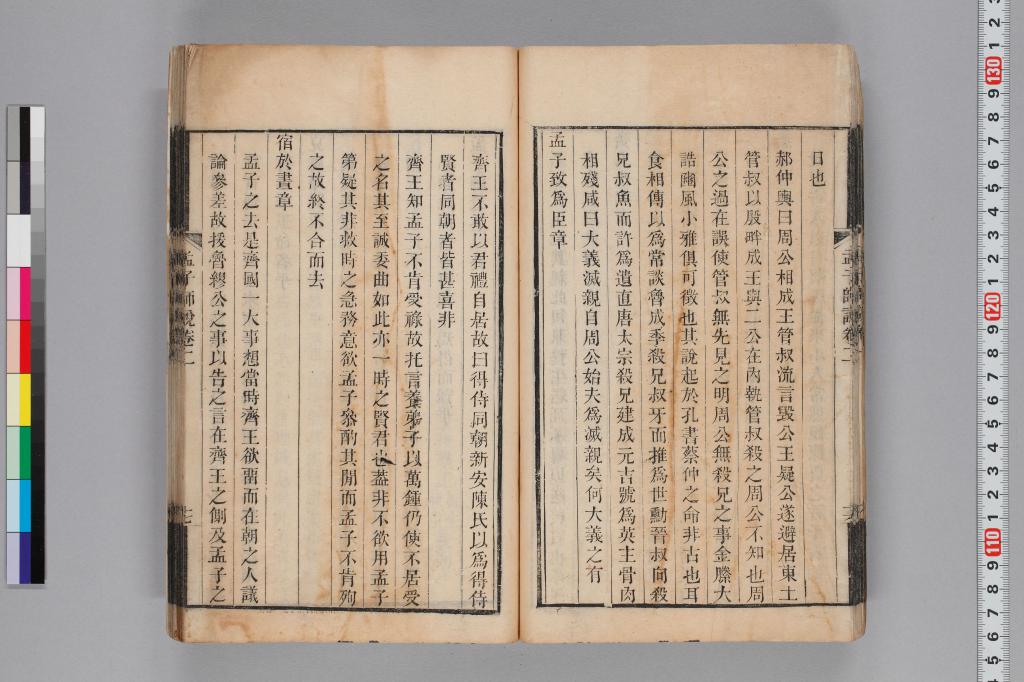 日也
郝仲輿曰周公相成王管叔流言毀公王疑公遂避居東土
管叔以殷畔成王與二公在內執管叔殺之周公不知也周
公之過在誤使管叔無先見之明周公無殺兄之事金縢大
誥豳風小雅俱可徵也其說起於孔書蔡仲之命非古也耳
食相傳以為常談魯成季殺兄叔牙而推為世勳晉叔向殺
兄叔魚而許為遺直唐太宗殺兄建成元吉號為英主骨肉
相殘咸曰大義滅親自周公始夫為滅親矣何大義之有
孟子致為臣章
齊王不敢以君禮自居故曰得侍同朝新安陳氏以為得侍
賢者同朝者皆甚喜非
齊王知孟子不肯受祿故托言養弟子以萬鍾仍使不居受
之名其至誠委曲如此亦一時之賢君也葢非不欲用孟子
第疑其非救時之急務意欲孟子參酌其閒而孟子不肯殉
之故終不合而去
宿於晝章
孟子之去是齊國一大事想當時齊王欲畱而在朝之人議
論參差故援魯繆公之事以告之言在齊王之側及孟子之
孟子師說卷二
十七